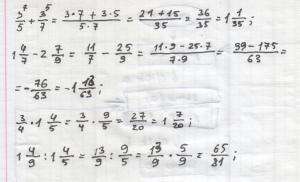 3/5 + 3/7 = (3·7 + 3·5)/(5·7) = (21 + 15)/35 = 36/35 = 1 1/35;
1 4/7 - 2 7/9 = 11/7 - 25/9 = (11·9 - 25·7)/(7·9) = (99 - 175)/63 =
= - 76/63 = -1 13/63;
3/4 · 1 4/5 = 3/4 · 9/5 = 27/20 = 1 7/20;
1 4/9 : 1 4/5 = 13/9 : 9/5 = 13/9 · 5/9 = 65/81;